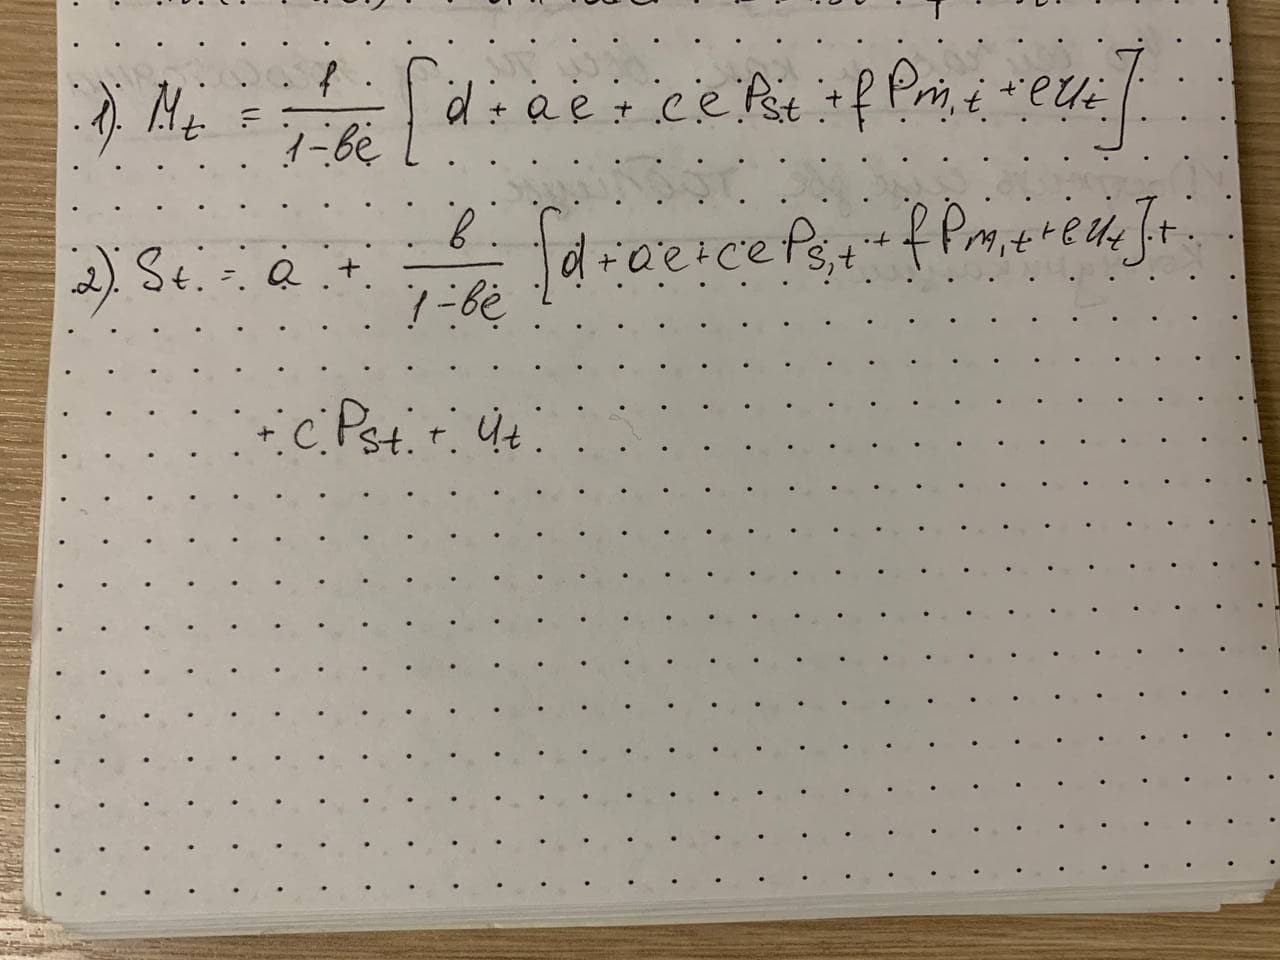 1) Mt = 1/(1-be) [d + ae + cePst + fPm,t + eut]
2) St = a + b/(1-be) [d + ae + cePs,t + fPm,t + eut] +
+ cPst + ut